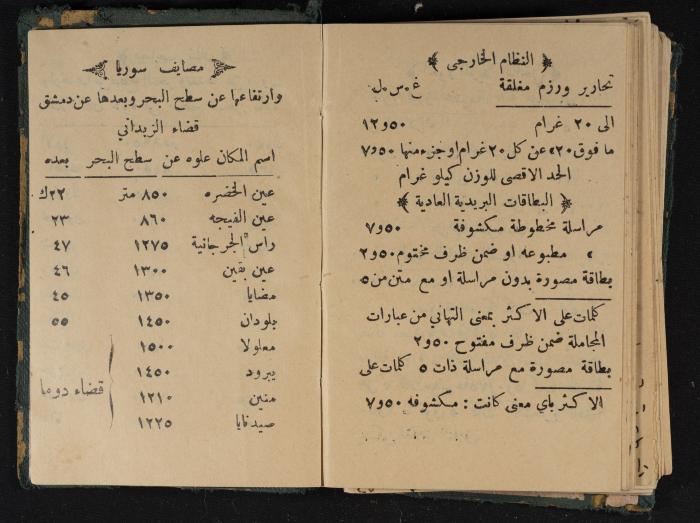 ﴿ النظام الخارجي ﴾
تحارير ورزم مغلقة غ٠س٠ل
الى ٢٠ غرام ١٢و٥٠
ما فوق ٢٠» عن كل ٢٠ غرام او جزء منها ٧و٥٠
الحد الاقصى للوزن كيلو غرام
﴿ البطاقات البريدية العادية ﴾
مراسلة مخطوطة مكشوفة ٧و٥٠
» مطبوعه او ضمن ظرف مختوم ٢و٥٠
بطاقة مصورة بدون مراسلة او مع متن من ٥
كلمات على الاكثر بمعنى التهاني من عبارات
المجاملة ضمن ظرف مفتوح ٢و٥٠
بطاقة مصورة مع مراسلة ذات ٥ كلمات على
الاكثر باي معنى كانت : مكشوفه ٧و٥٠
مصايف سوريا
وارتفاعها عن سطح البحر وبعدها عن دمشق
قضاء الزبداني
اسم المكان علوه عن سطح البحر بعده
عين الخضره ٨٥٠ متر ٢٢ك
عين الفيجه ٨٦٠ ٢٣
راس الجرجانية ١٢٧٥ ٤٧
عين بقين ١٣٠٠ ٤٦
مضايا ١٣٥٠ ٤٥
بلودان ١٤٥٠ ٥٥
معلولا ١٥٠٠
يبرود ١٤٥٠
قضاء دوما
منين ١٢١٠
صيدنايا ١٢٢٥